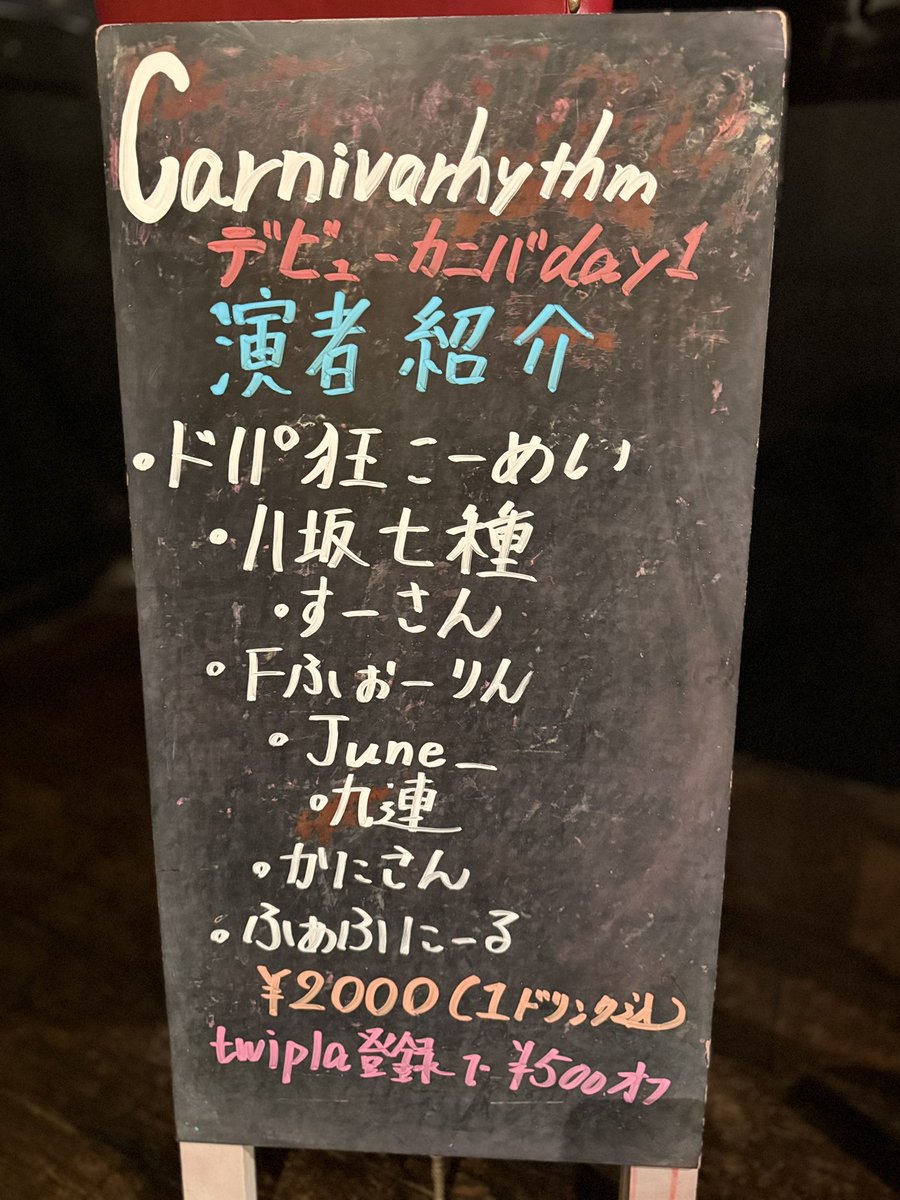 Carnivarhythm
デビューカニバday1
演者紹介
・ドパ狂こーめい
・川坂七種
・すーさん
・Fふぉーりん
・June_
・九連
・かにさん
・ふぁふにーる
¥2000(1ドリンク込)
twipla登録で¥500オフ